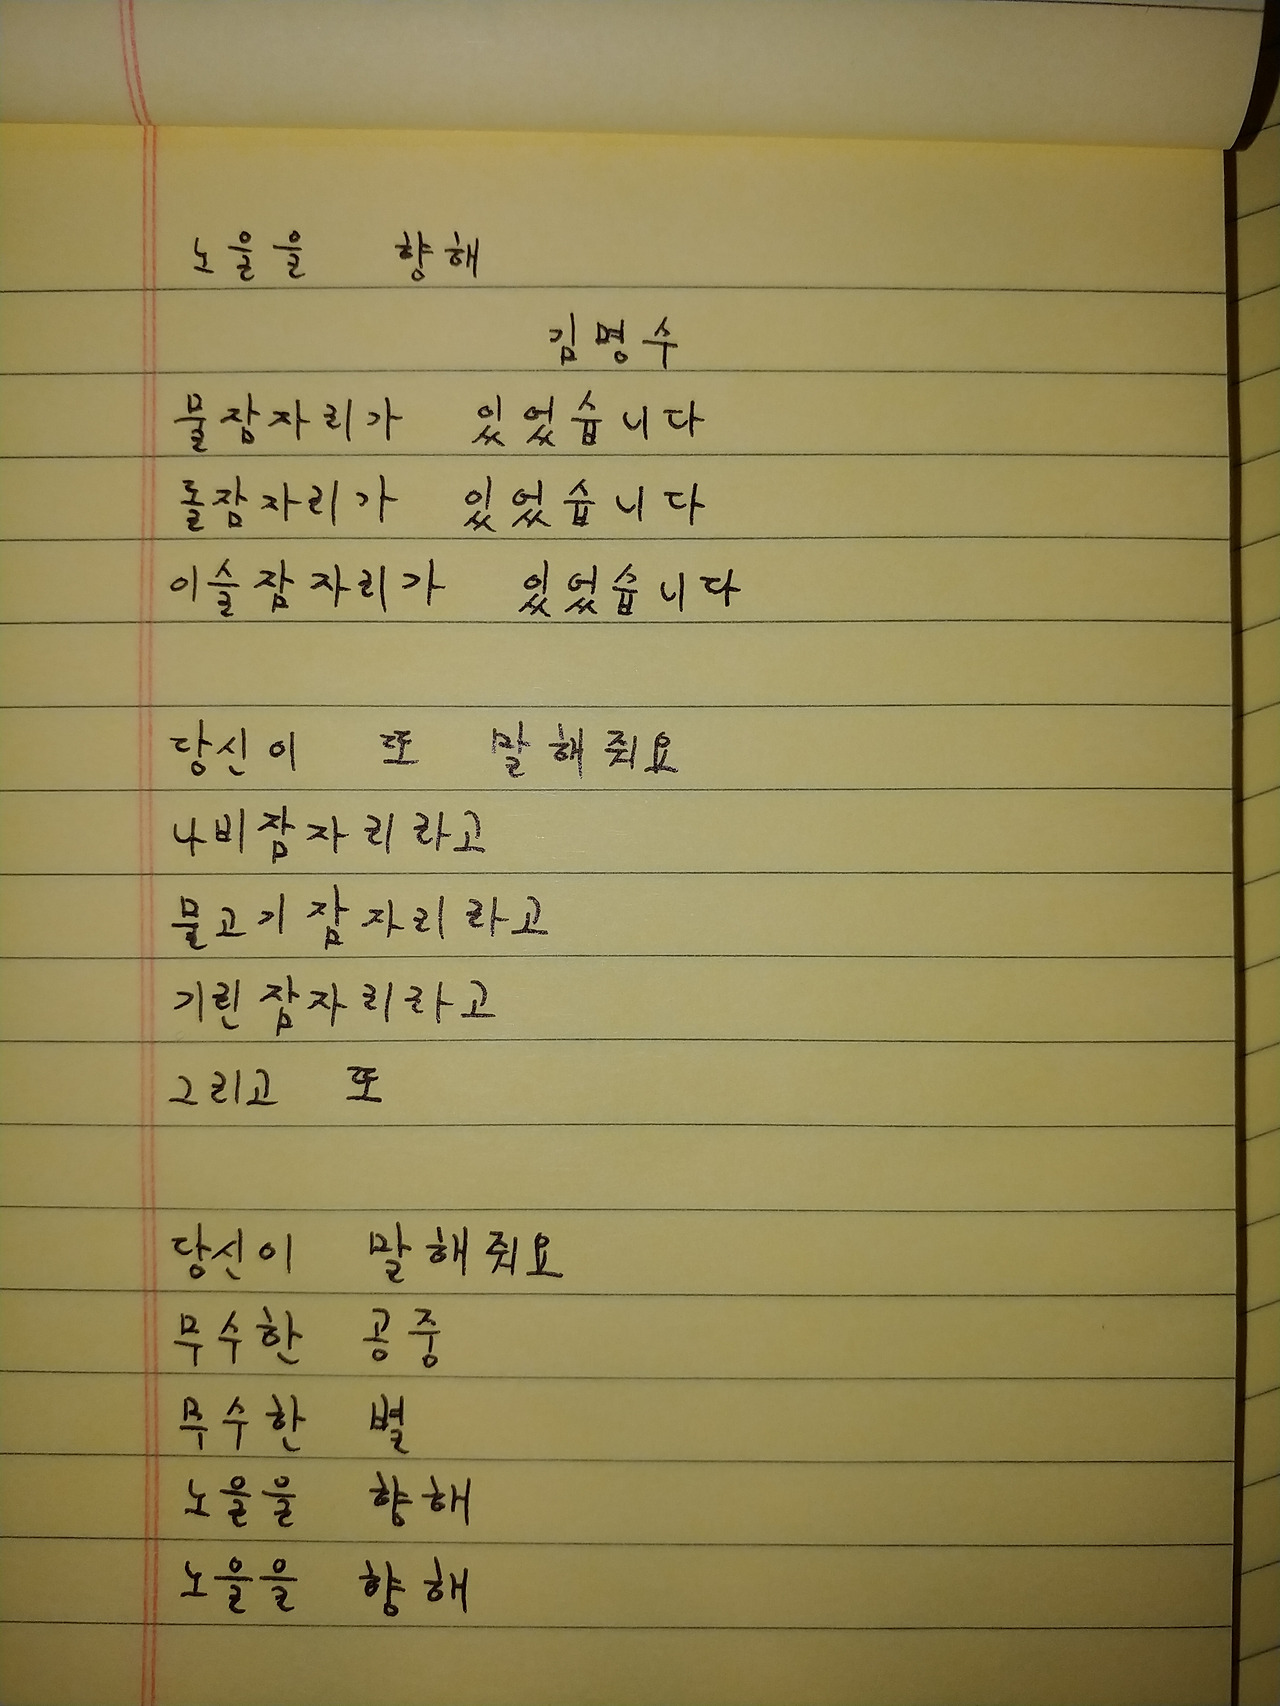 노을을 향해
김명수
물잠자리가 있었습니다
돌잠자리가 있었습니다
이슬잠자리가 있었습니다
당신이 또 말해줘요
나비잠자리라고
물고기잠자리라고
기린잠자리라고
그리고 또
당신이 말해줘요
무수한 공중
무수한 별
노을을 향해
노을을 향해